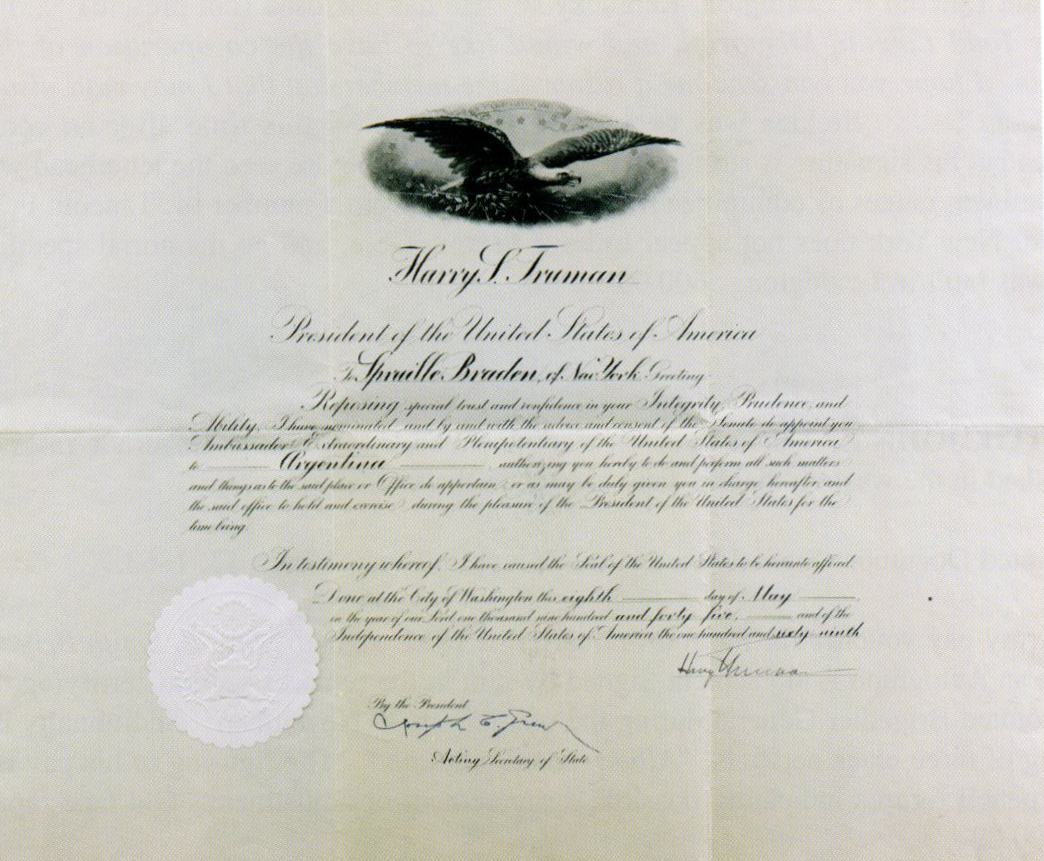 Harry S. Truman
President of the United States of America
To Spruille Braden, of New York Greeting:
Reposing special trust and confidence in your Integrity, Prudence, and
Ability, I have nominated, and by and with the advice and consent of the Senate do appoint you
Ambassador Extraordinary and Plenipotentiary of the United States of America
to Argentina, authorizing you hereby to do and perform all such matters
and things as to the said place or Office do appertain, or as may be duly given you in charge hereafter, and
the said office to hold and exercise during the pleasure of the President of the United States for the
time being.
In testimony whereof, I have caused the Seal of the United States to be hereunto affixed.
Done at the City of Washington this eighth day of May
in the year of our Lord one thousand nine hundred and forty five, and of the
Independence of the United States of America the one hundred and sixty ninth
Harry Truman
By the President
Joseph C. Grew
Acting Secretary of State